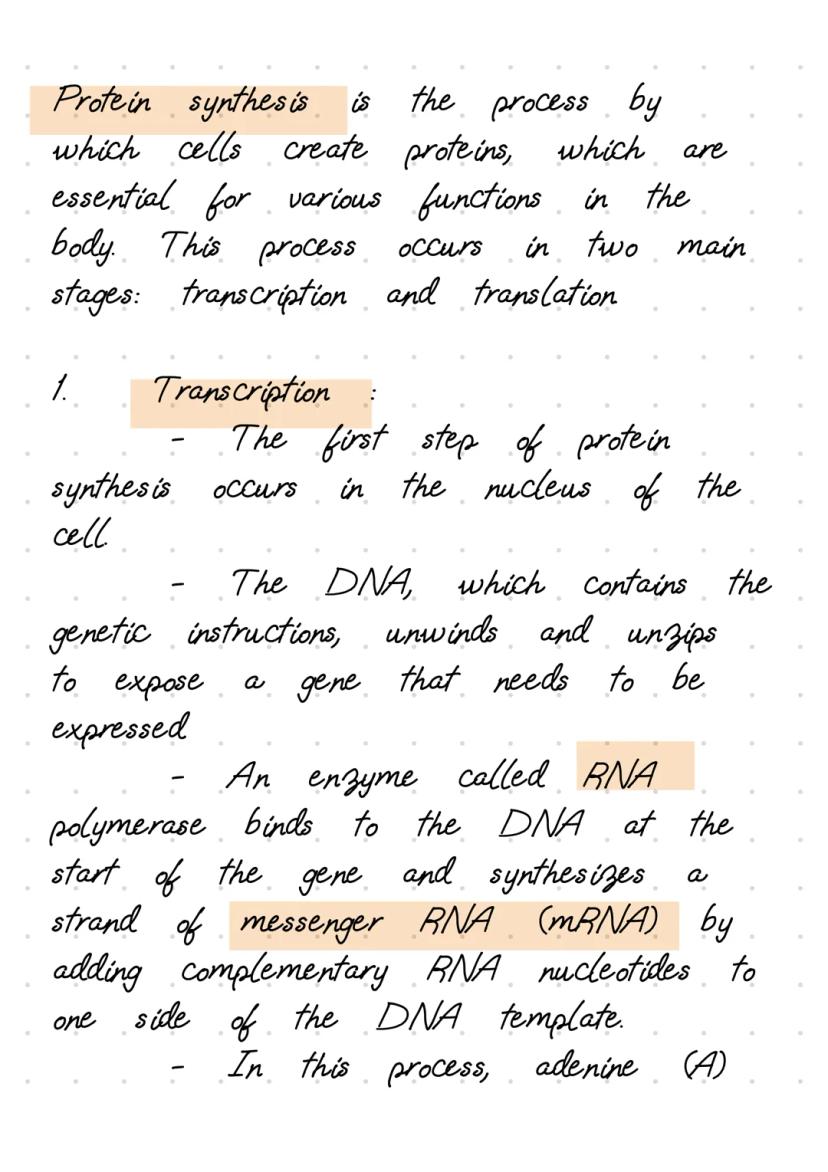 Protein synthesis is the process by
which cells create proteins, which are
essential for various functions in the
body. This process occurs in two main
stages: transcription and translation
1. Transcription :
- The first step of protein
synthesis occurs in the nucleus of the
cell.
- The DNA, which contains the
genetic instructions, unwinds and unzips
to expose a gene that needs to be
expressed
- An enzyme called RNA
polymerase binds to the DNA at the
start of the gene and synthesizes a
strand of messenger RNA (mRNA) by
adding complementary RNA nucleotides to
one side of the DNA template.
- In this process, adenine (A)